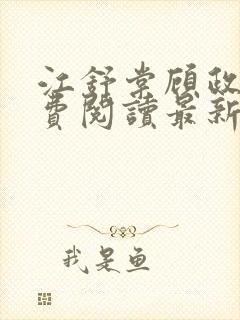 江舒棠顾政
费阅讀最新
我是鱼